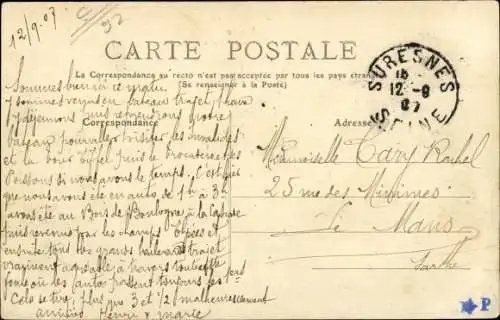 12/9.07
CARTE POSTALE
La Correspondance au recto n'est pas acceptée par tous les pays étrangers
(Se renseigner à la Poste)
Correspondance
Adresse
SURESNES
12-9
07
SEINE
Sommes bien ici ce matin
sommes venus en bateau trajet
y déjeunons puis reprendrons notre
bateau pour aller visiter les invalides
et la tour Eiffel puis le trocadero les
Poissons si nous avons le temps. C'est hier
que nous avons été en auto de 1h à 3h
avons été au Bois de Boulogne à la Cascade
puis revenus par les champs Elysées et
ensuite tous les grands boulevards trajet
vraiment agréable à travers toute cette
foule où les autos passent toujours les
Cela se tire, plus que 3 et 1/2 malheureusement
amitiés Henri & Marie
Mademoiselle Cary Rachel
25 rue des Minimes
Le Mans
Sarthe
P